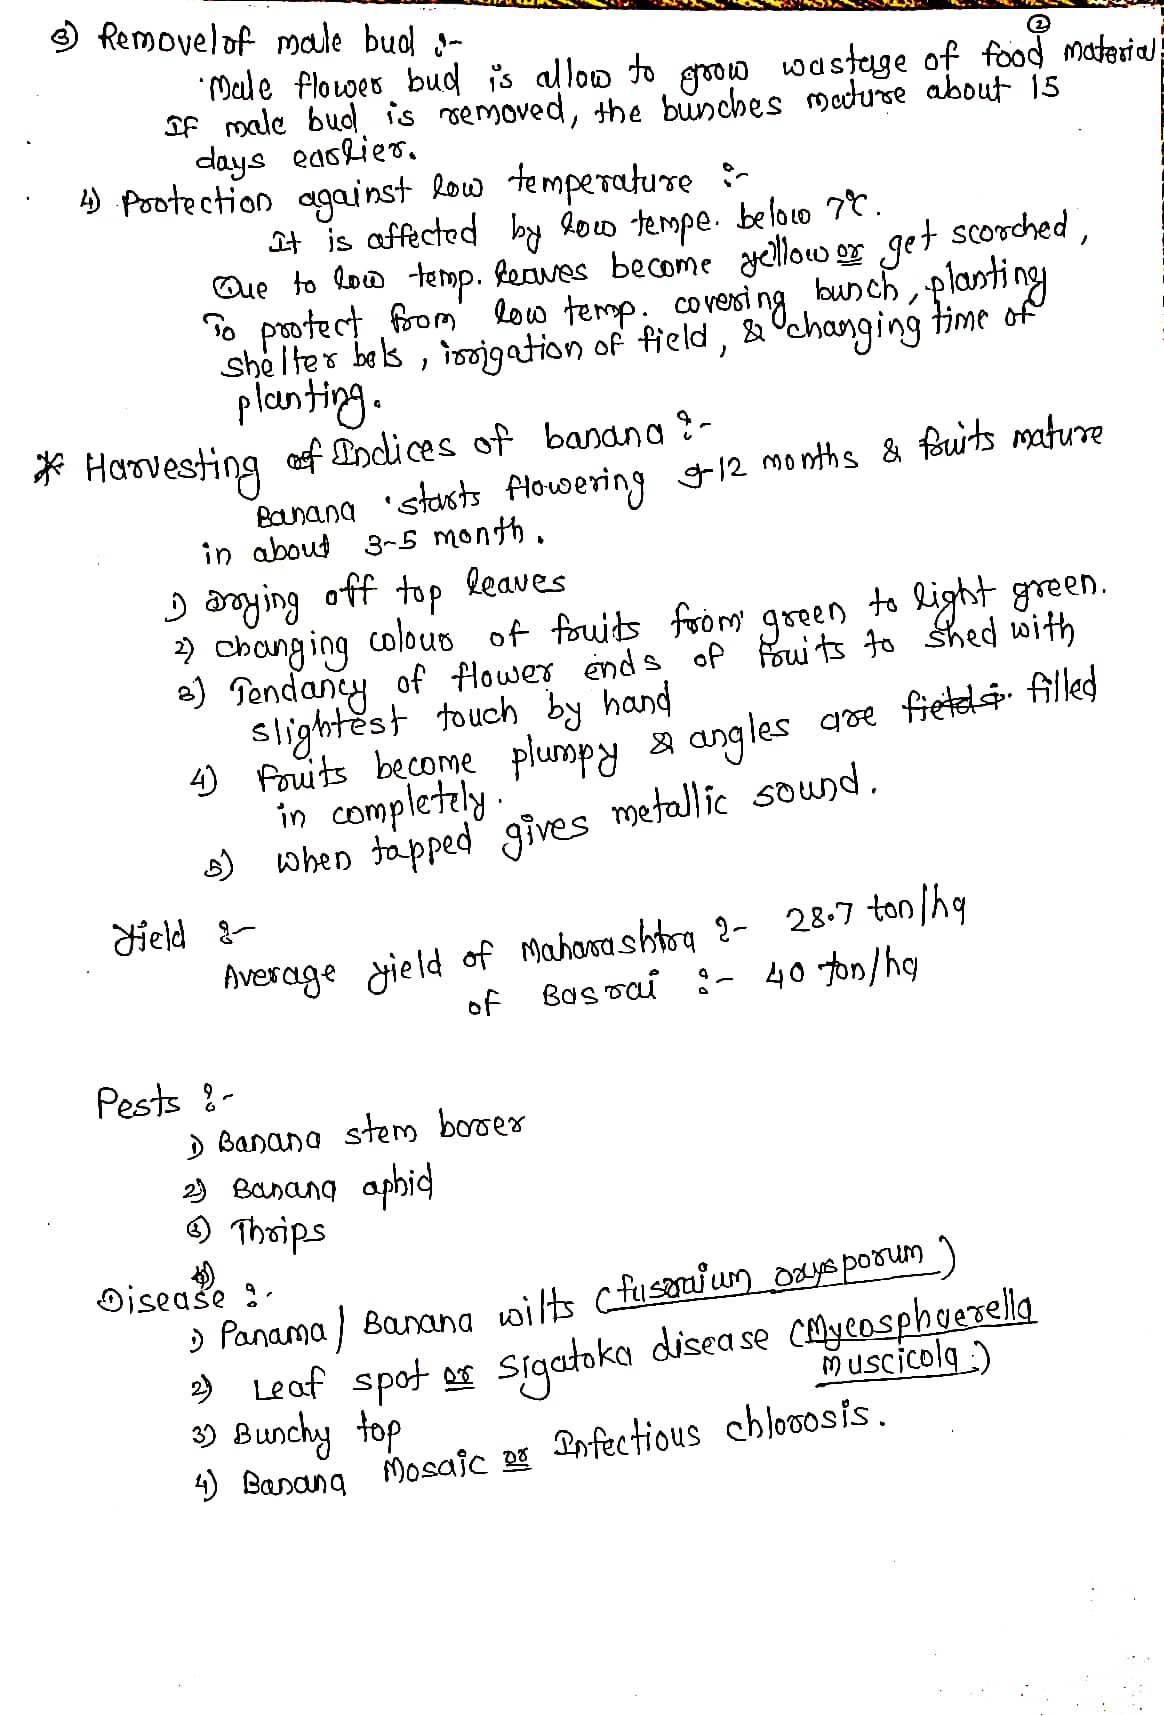 ②
③ Removel of male bud :-
Male flower bud is allow to grow wastage of food material
If male bud is removed, the bunches mature about 15
days earlier.
4) Protection against low temperature :-
It is affected by low tempe. below 7°C.
Due to low temp. leaves become yellow or get scorched,
To protect from low temp. covering bunch, planting
shelter bels, irrigation of field, & changing time of
planting.
* Harvesting of Indices of banana :-
Banana starts flowering 9-12 months & fruits mature
in about 3-5 month.
1) Drying off top leaves
2) changing colour of fruits from green to light green.
3) Tendancy of flower ends of fruits to shed with
slightest touch by hand
4) fruits become plumpy & angles are fields. filled
in completely.
5) when tapped gives metallic sound.
Yield :-
Average yield of Maharashtra :- 28.7 ton/ha
of Basrai :- 40 ton/ha
Pests :-
1) Banana stem borer
2) Banana aphid
③ Thrips
④
Disease :-
1) Panama / Banana wilts (fusaraium oxysporum)
2) Leaf spot or Sigatoka disease (Mycosphaerella
muscicola:)
3) Bunchy top
4) Banana Mosaic or Infectious chlorosis.